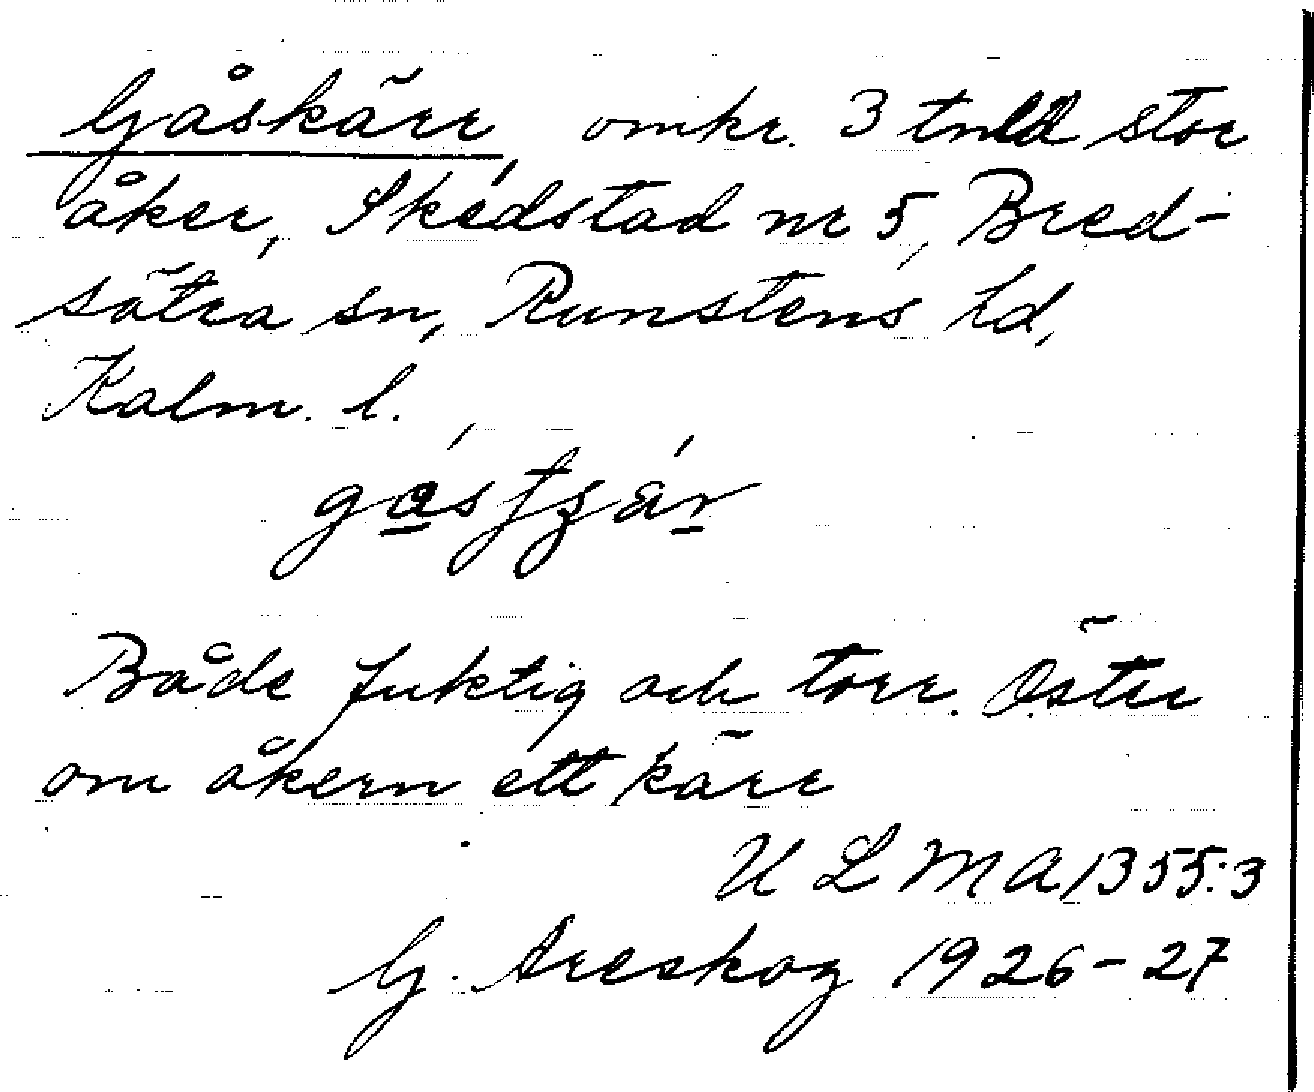 Gåskärr, omkr. 3 tnld stor
åker, Skedstad nr 5, Bred-
sätra sn, Runstens hd,
Kalm. l.
Både fuktig och torr. Öster
om åkern ett kärr
ULMA 1355:3
G. Areskog 1926-27